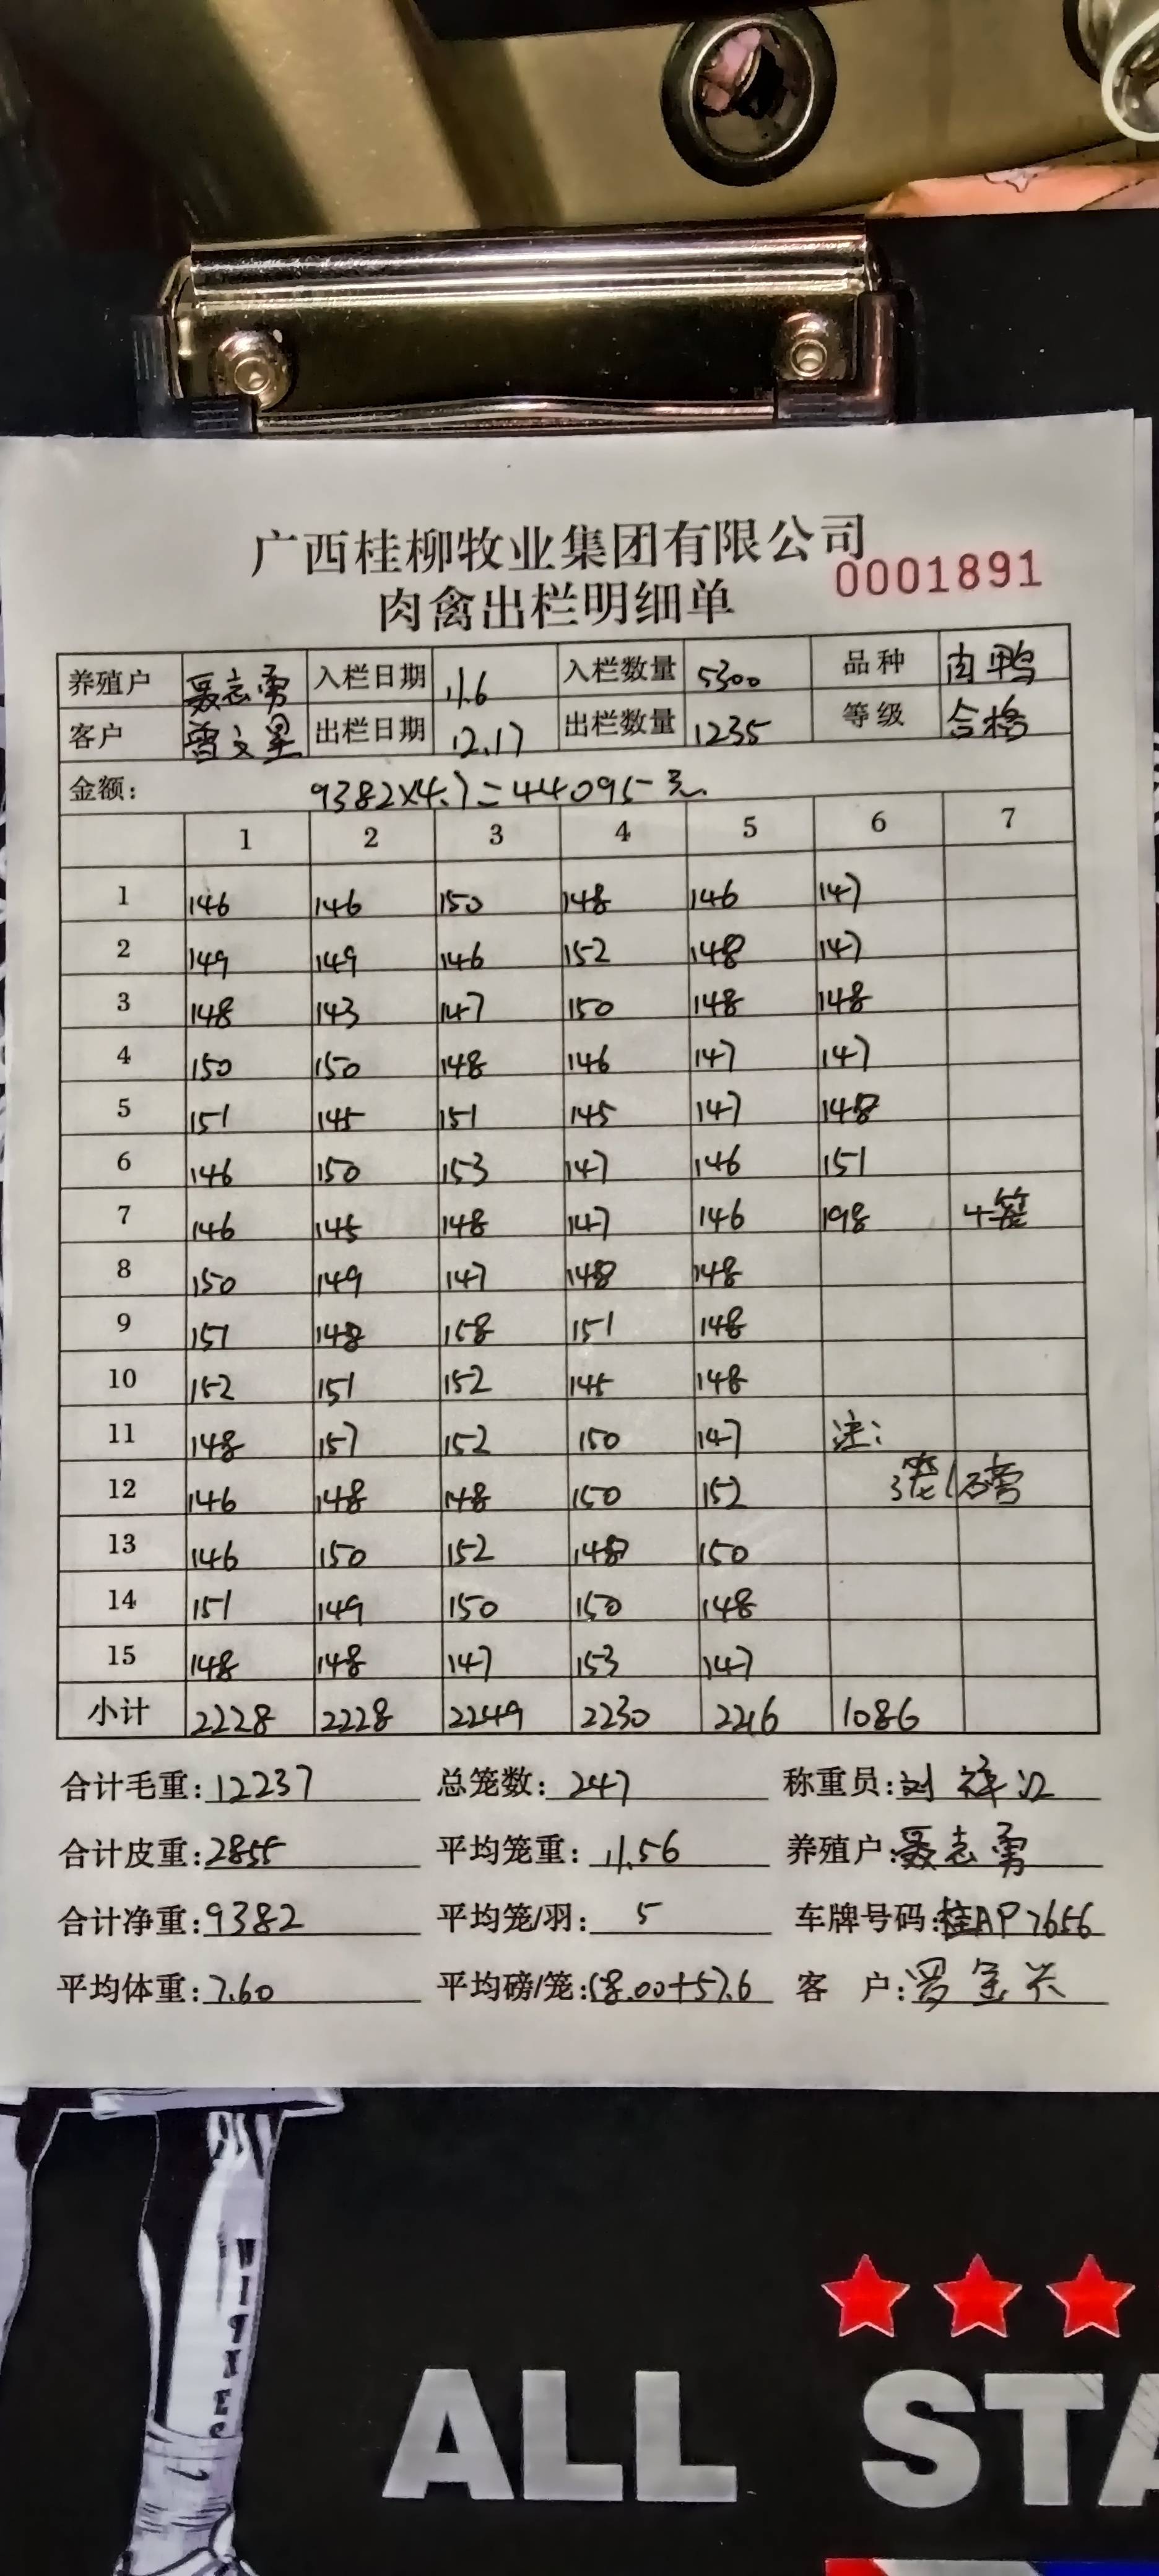 广西桂柳牧业集团有限公司
0001891
肉禽出栏明细单
养殖户 聂志勇 入栏日期 11.6 入栏数量 5300 品种 肉鸭
客户 曾文星 出栏日期 12.17 出栏数量 1235 等级 合格
金额: 9382×4.7=44095元
1 2 3 4 5 6 7
1 146 146 150 148 146 147
2 149 149 146 152 148 147
3 148 143 147 150 148 148
4 150 150 148 146 147 147
5 151 145 151 145 147 148
6 146 150 153 147 146 151
7 146 145 148 147 146 198 4笼
8 150 149 147 148 148
9 151 148 158 151 148
10 152 151 152 145 148
11 148 157 152 150 147 注:
12 146 148 148 150 152 3笼1磅
13 146 150 152 148 150
14 151 149 150 150 148
15 148 148 147 153 147
小计 2228 2228 2249 2230 2216 1086
合计毛重: 12237 总笼数: 247 称重员: 刘祥江
合计皮重: 2855 平均笼重: 11.56 养殖户: 聂志勇
合计净重: 9382 平均笼/羽: 5 车牌号码: 桂AP7656
平均体重: 7.60 平均磅/笼: 58.00+57.6 客 户: 罗金兴
ALL STA